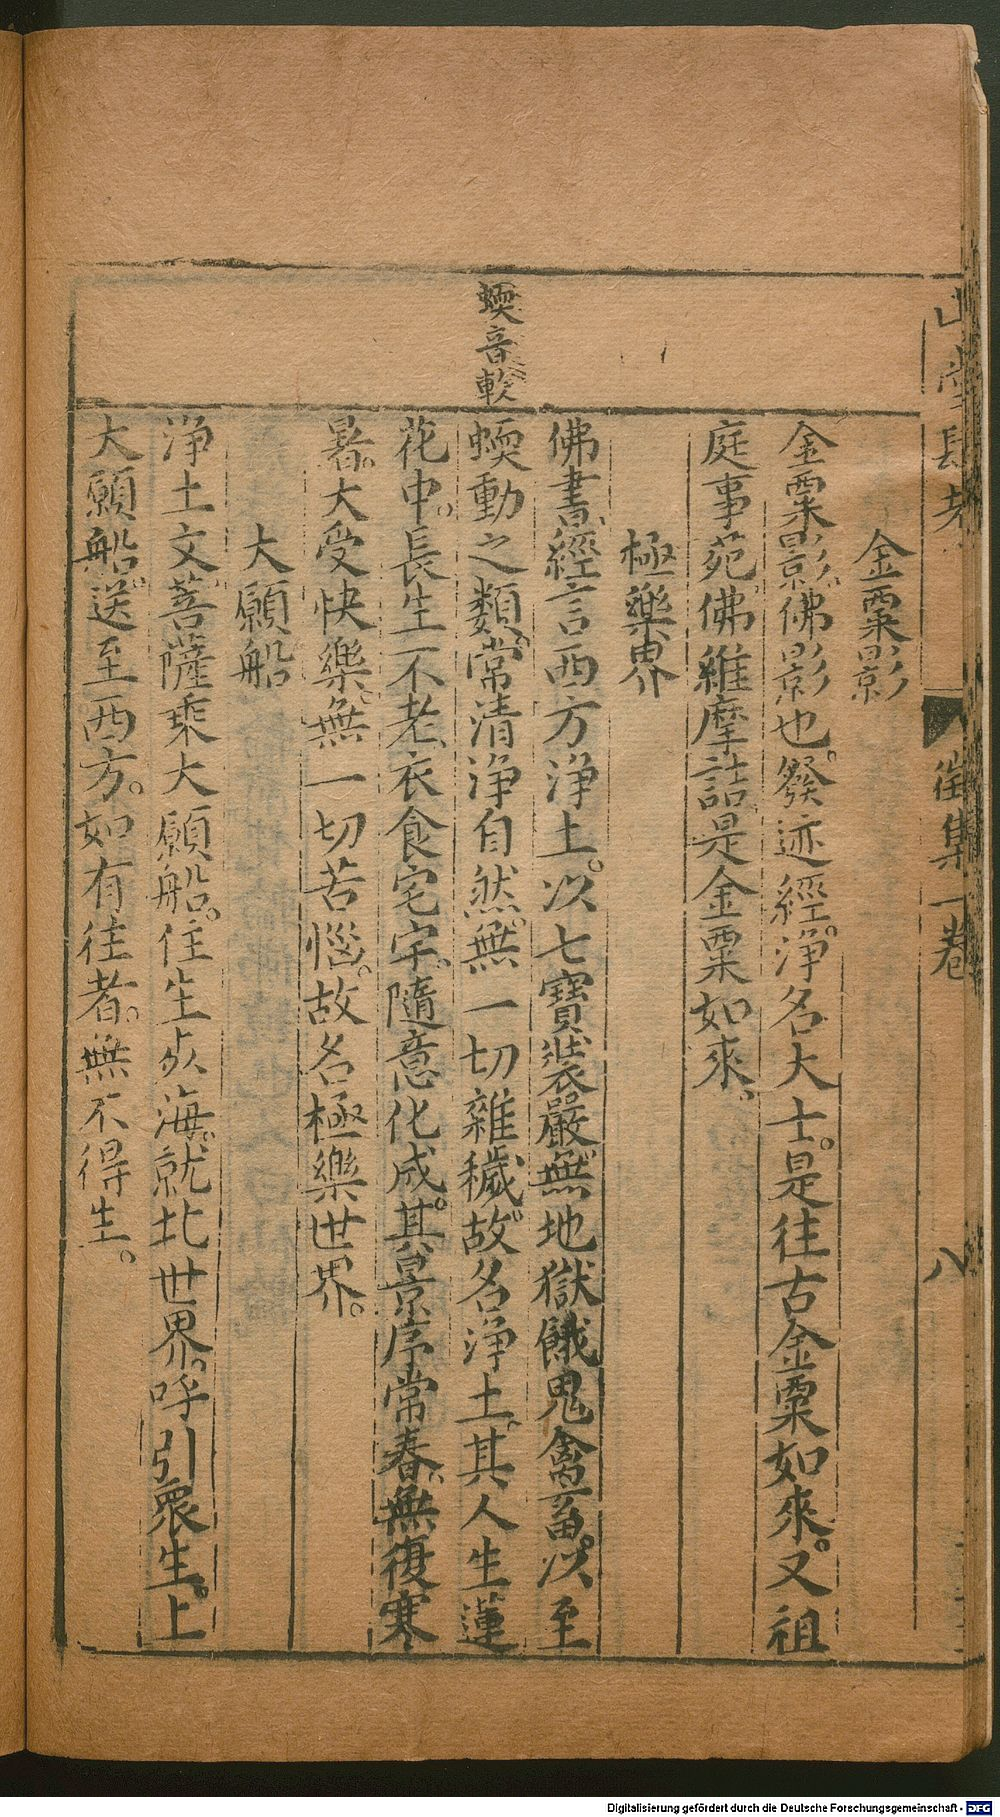 山堂肆考
徵集一卷
八
金粟影
金粟影佛影也發迹經淨名大士是往古金粟如來又祖
庭事苑佛維摩詰是金粟如來
極樂界
蝡音軟
佛書經言西方淨土以七寶裝嚴無地獄餓鬼禽畜以至
蝡動之類常清淨自然無一切雜穢故名淨土其人生蓮
花中長生不老衣食宅宇隨意化成其景序常春無復寒
暑大受快樂無一切苦惱故名極樂世界
大願船
淨土文菩薩乘大願船住生死海就此世界呼引眾生上
大願船送至西方如有往者無不得生
Digitalisierung gefördert durch die Deutsche Forschungsgemeinschaft - DFG